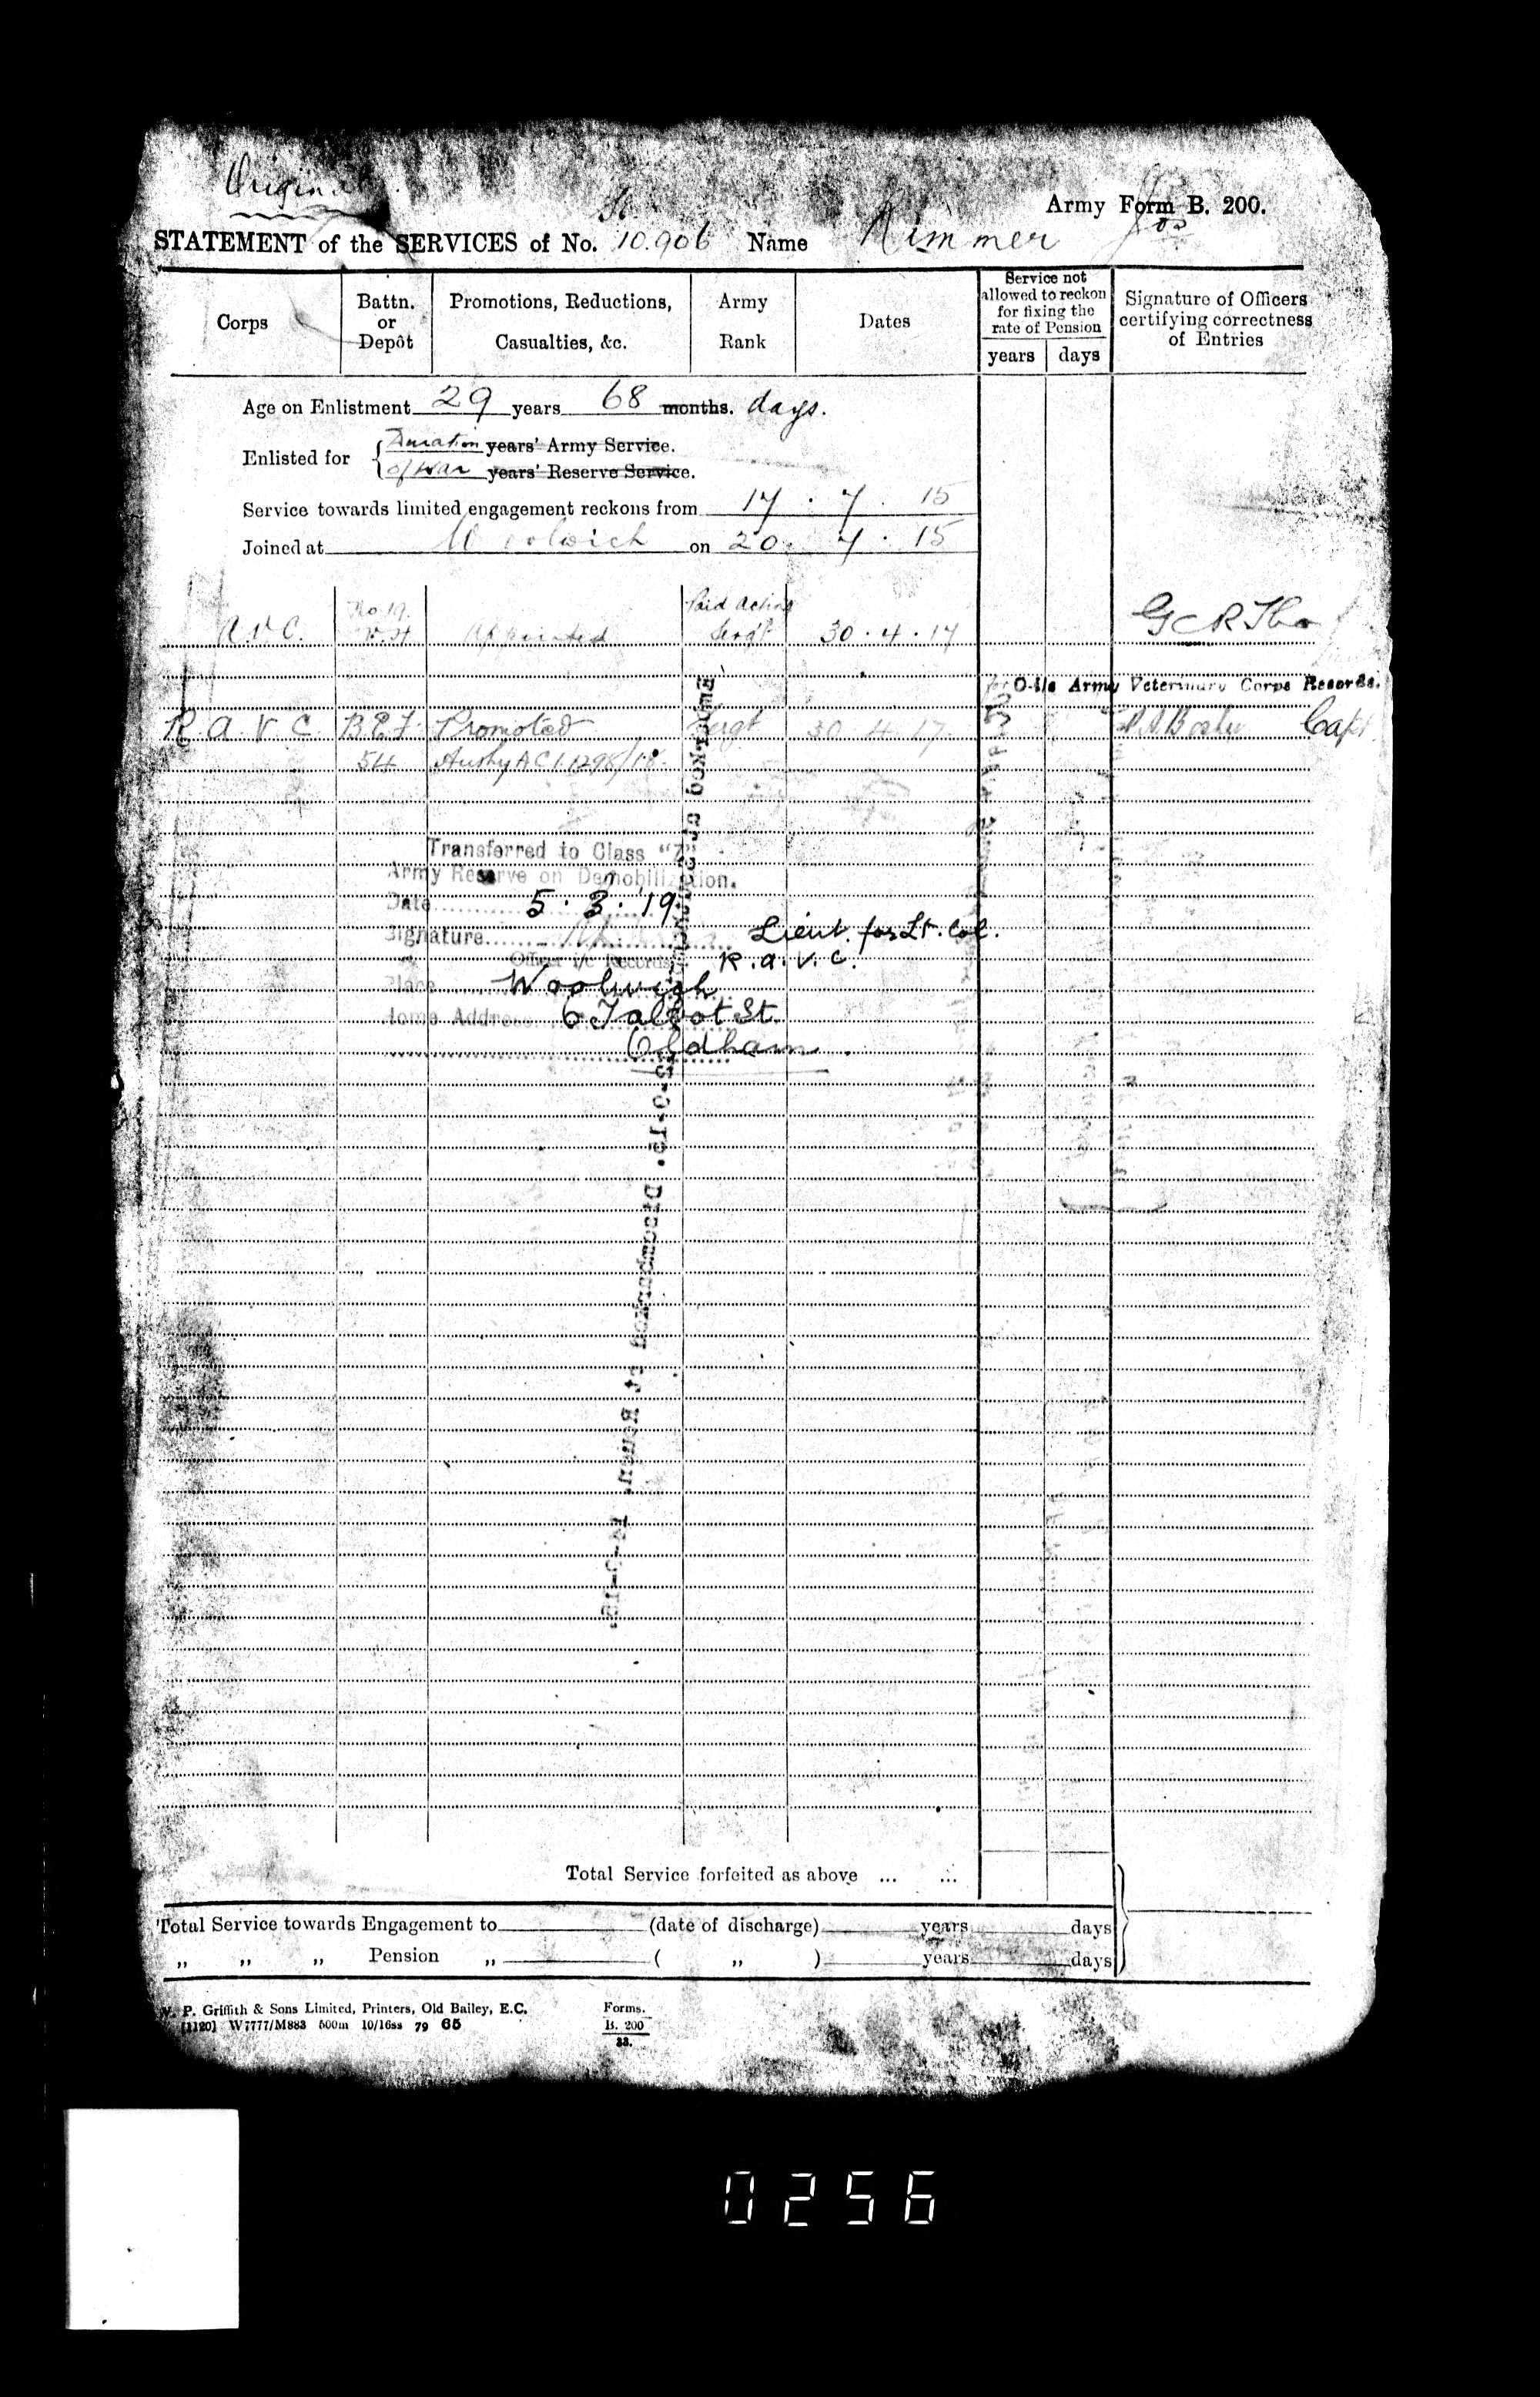 Original
Army Form B. 200.
STATEMENT of the SERVICES of No. 10.906 Name Rimmer Jos
Corps
Battn. or Depôt
Promotions, Reductions, Casualties, &c.
Army Rank
Dates
Service not allowed to reckon for fixing the rate of Pension
years days
Signature of Officers certifying correctness of Entries
Age on Enlistment 29 years 68 months. days.
Enlisted for Duration years' Army Service.
of War years' Reserve Service.
Service towards limited engagement reckons from 17 . 7 . 15
Joined at Woolwich on 20 . 7 . 15
No 19. Paid Acting
A.V.C. V.H appointed Sergt 30 . 4 . 17
O-i/c Army Veterinary Corps Records.
R A V C B.E.F. Promoted Sergt 30 4 17 Capt.
54 Authy A C I 1298/18.
Transferred to Class "Z"
Army Reserve on Demobilization.
Date 5 . 3 . 19
Signature Lieut. for Lt. Col.
Officer i/c Records R.A.V.C.
Place Woolwich
Home Address 6 Talbot St.
Oldham
Disembarked at Rouen.
Total Service forfeited as above ... ...
Total Service towards Engagement to (date of discharge) years days
„ „ „ Pension „ ( „ ) years days
W. P. Griffith & Sons Limited, Printers, Old Bailey, E.C.
[1120] W7777/M883 500m 10/16ss 79 65
Forms.
B. 200
33.
0256